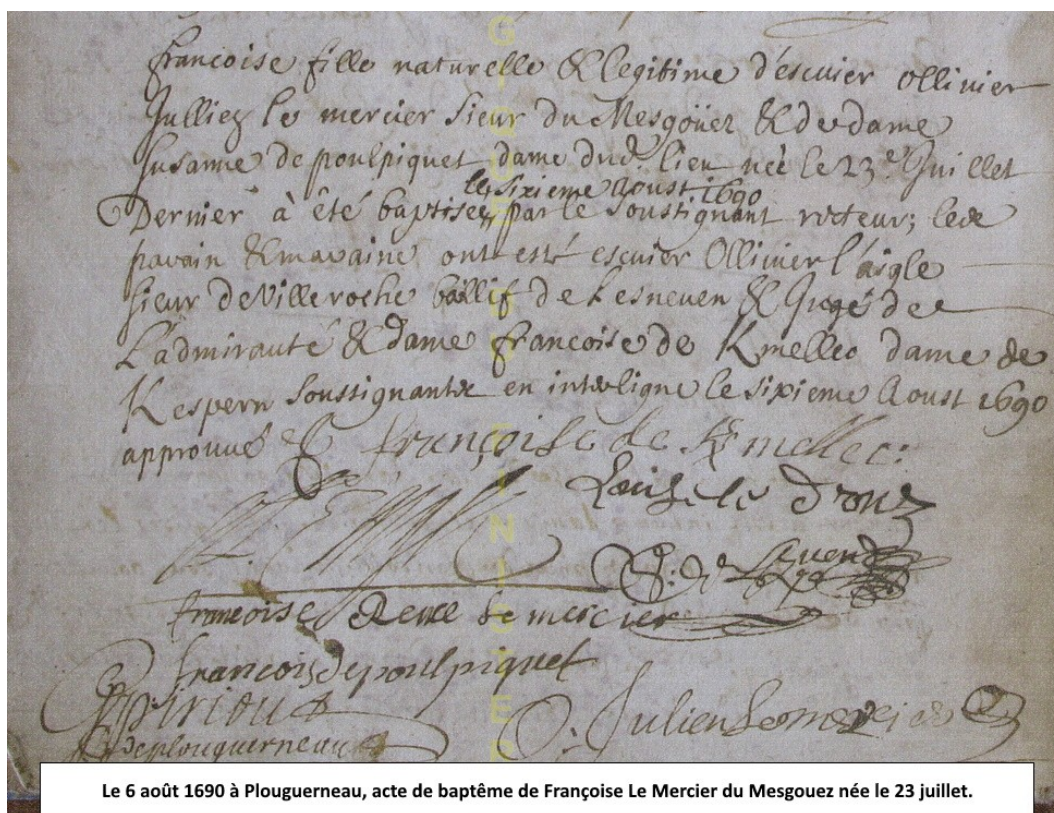 francoise fille naturelle & legitime d'escuier ollivier
Jullien le mercier Sieur du Mesgoüez & de dame
Susanne de poulpiquet dame dud. lieu née le 23e Juillet
le sixieme Aoust 1690
Dernier à été baptisee par le soustignant recteur;
parain & maraine ont esté escuier Ollivier l'aigle
sieur de Villeroche ballif de Lesneven & Juge de
L'admirauté & dame francoise de Kmellec dame de
Kespern soustignants en interligne le sixieme Aoust 1690
approuvé
françoise de Kmellec
Louise le
francoise Renee Le mercier
francois de poulpiquet
de plouguerneau
Julien Le mercier
Le 6 août 1690 à Plouguerneau, acte de baptême de Françoise Le Mercier du Mesgouez née le 23 juillet.